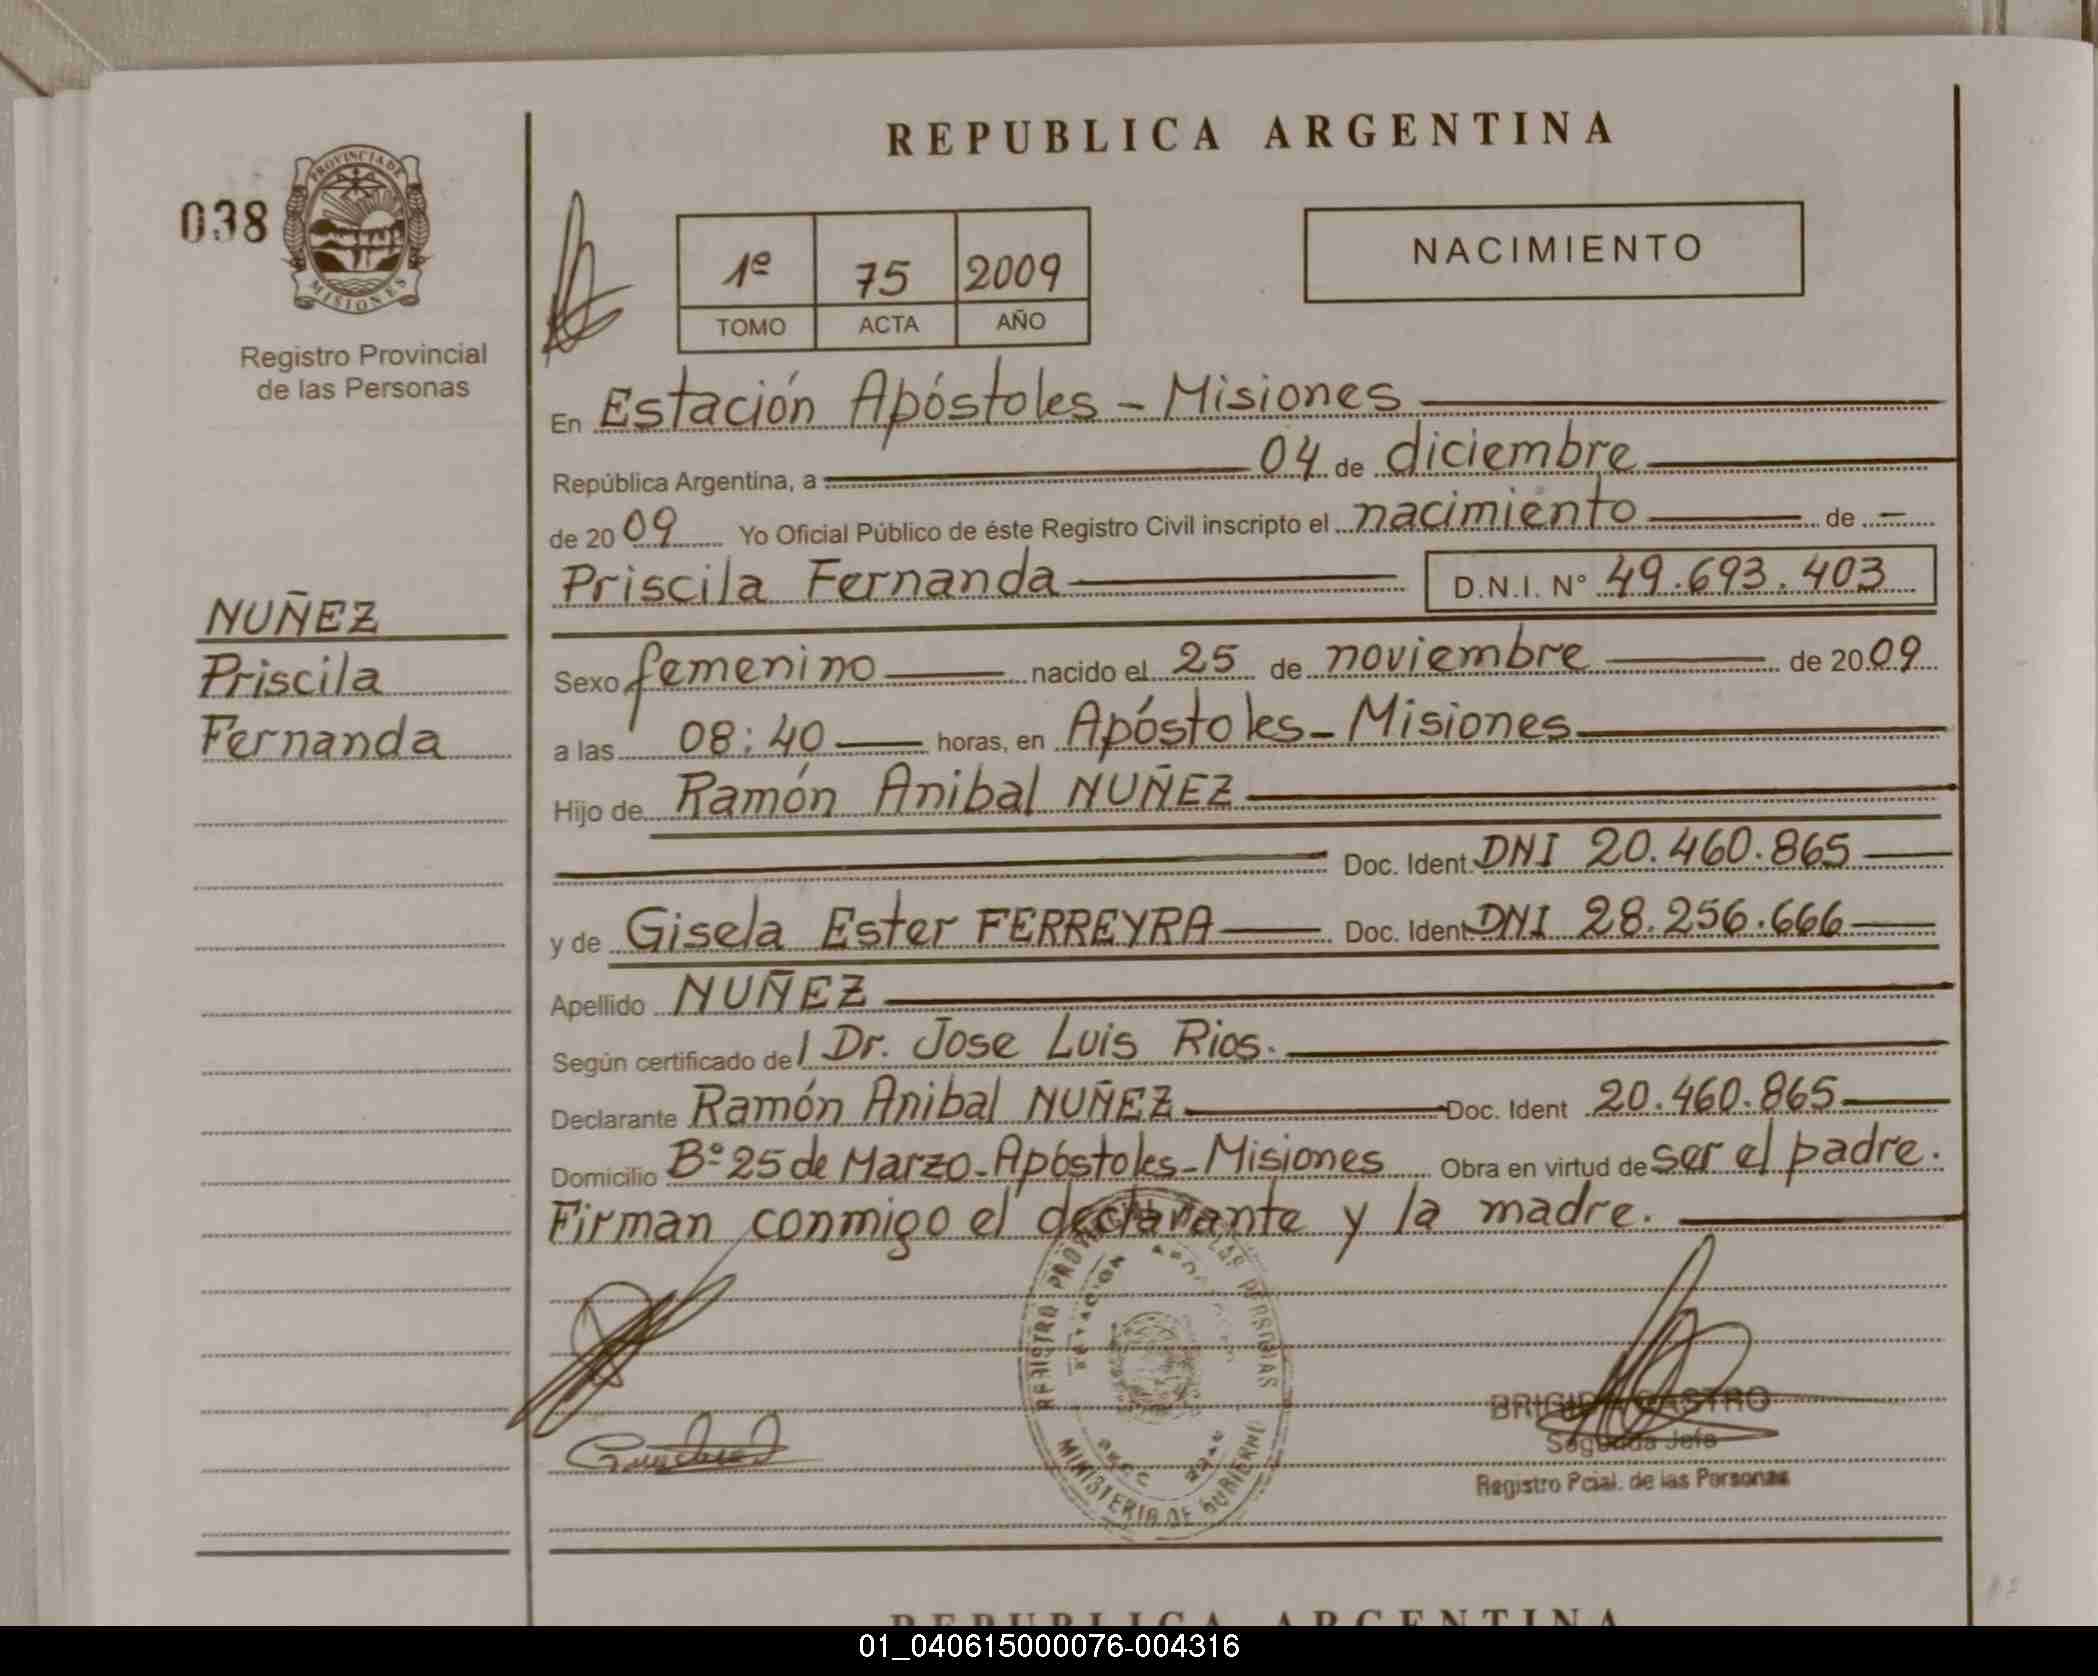 REPUBLICA ARGENTINA
038
PROVINCIA DE
MISIONES
Registro Provincial
de las Personas
1º 75 2009
TOMO ACTA AÑO
NACIMIENTO
En Estación Apóstoles - Misiones
República Argentina, a 04 de diciembre
de 2009 Yo Oficial Público de éste Registro Civil inscripto el nacimiento de -
Priscila Fernanda D.N.I. Nº 49.693.403
NUÑEZ
Priscila
Fernanda
Sexo femenino nacido el 25 de noviembre de 2009
a las 08:40 horas, en Apóstoles - Misiones
Hijo de Ramón Anibal NUÑEZ
Doc. Ident. DNI 20.460.865
y de Gisela Ester FERREYRA Doc. Ident. DNI 28.256.666
Apellido NUÑEZ
Según certificado del Dr. Jose Luis Rios.
Declarante Ramón Anibal NUÑEZ Doc. Ident 20.460.865
Domicilio Bº 25 de Marzo - Apóstoles - Misiones Obra en virtud de ser el padre.
Firman conmigo el declarante y la madre.
REGISTRO PROV LAS PERSONAS
ESTACION
MINISTERIO DE GOBIERNO
BRIGIDA CASTRO
Segunda Jefe
Registro Pcial. de las Personas
REPUBLICA ARGENTINA
01_040615000076-004316